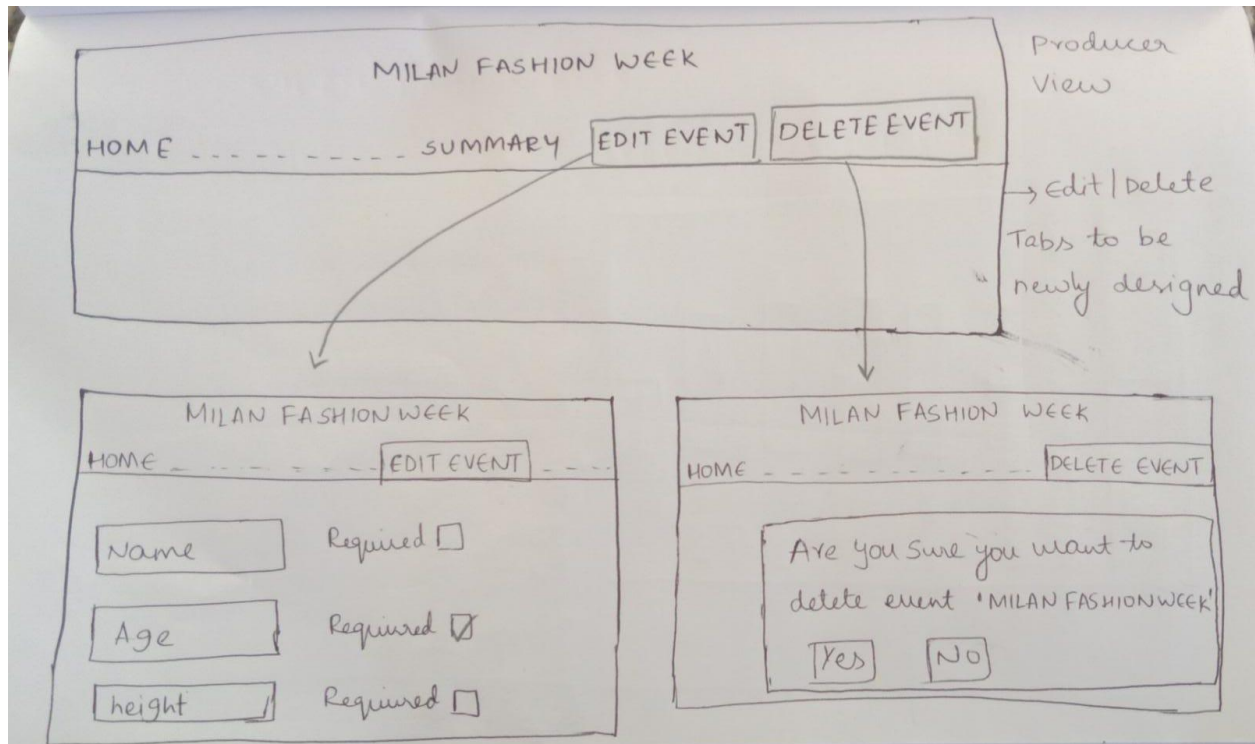 MILAN FASHION WEEK
HOME - - - - - - - - - - SUMMARY EDIT EVENT DELETE EVENT
Producer
View
→ Edit/Delete
Tabs to be
newly designed
MILAN FASHION WEEK
HOME - - - - - - - EDIT EVENT - - - -
Name Required
Age Required
height Required
MILAN FASHION WEEK
HOME - - - - - - - - - - - - DELETE EVENT
Are you sure you want to
delete event 'MILAN FASHION WEEK'
Yes No